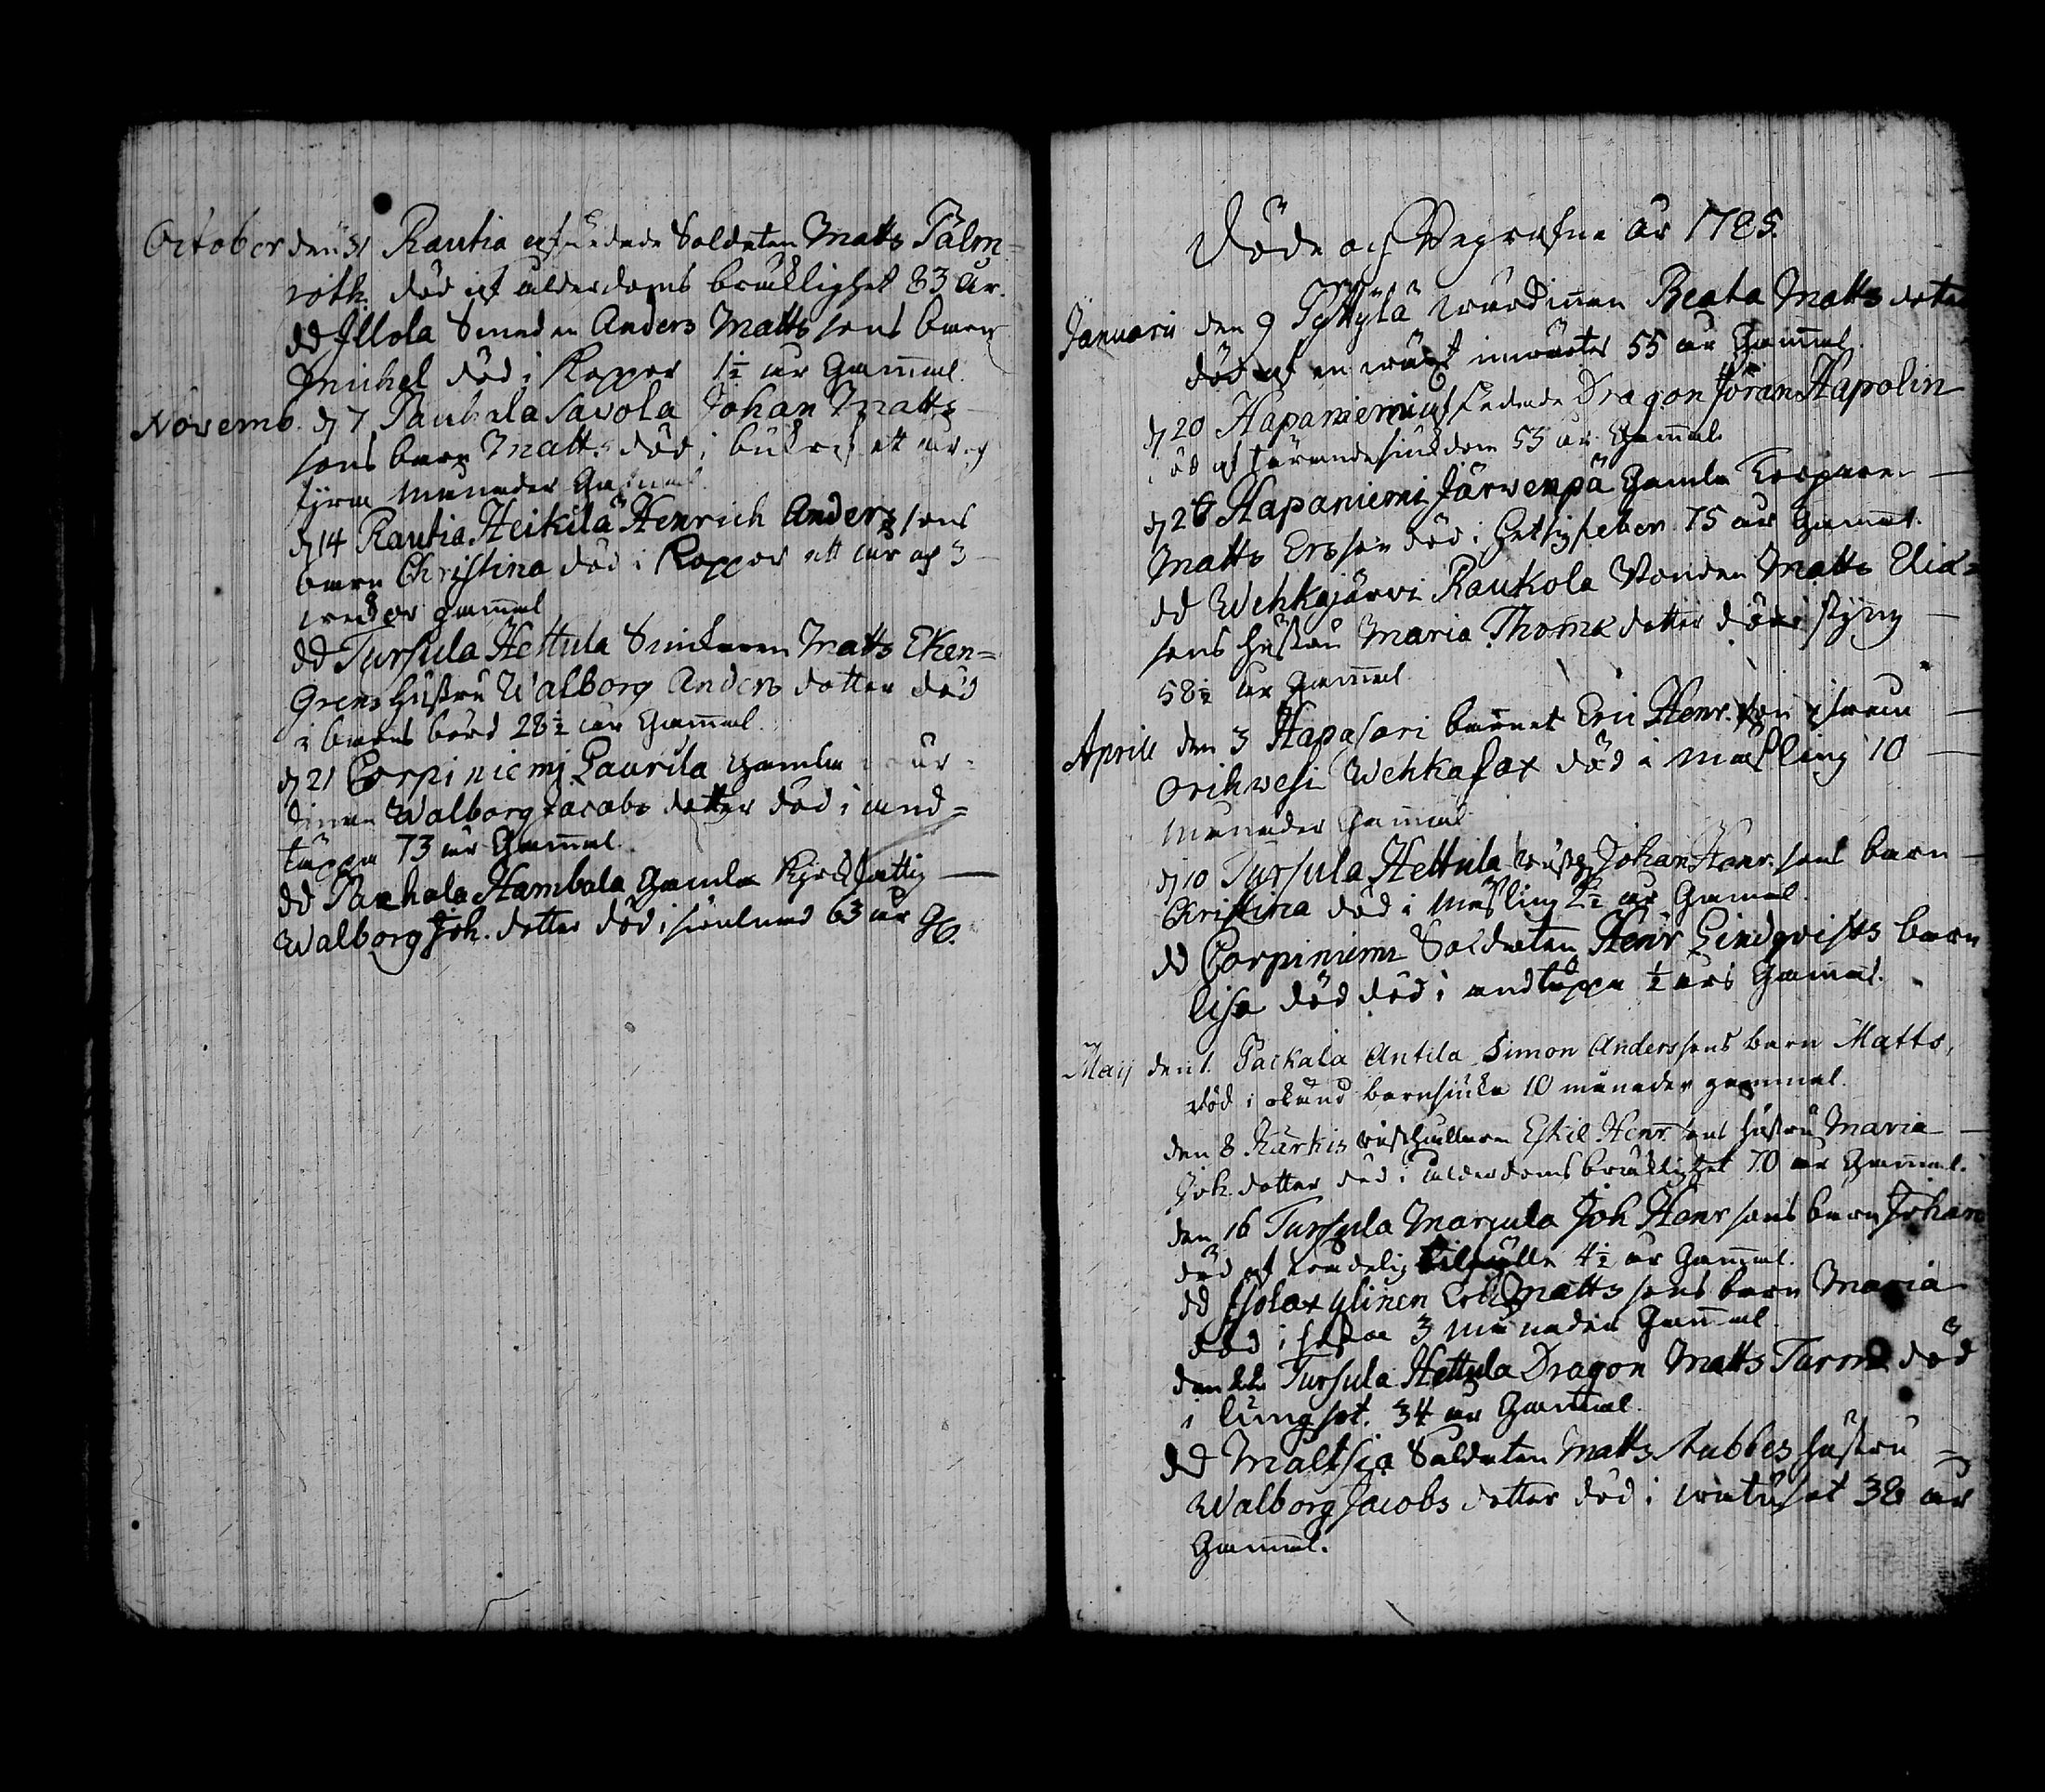 October den 31 Rautia afskedade Soldaten Matts Palm-
roth. död af ålderdoms bräcklighet 83 år.
dd Illola Smeden Anders Matts sons barn
Michel död i Koppor 1½ år Gammal.
Novemb. d 7 Pauhala Savola Johan Matts
sons barn Matts död i bukref ett år och
fyra månader Gammal.
d 14 Rautia Heikilä Henrich Anders sons
barn Christina död i Koppor ett år och 3
weckor gammal
dd Tursula Hettula Snickaren Matts Eken=
Grens hustru Walborg Anders dotter död
i barns börd 28½ år Gammal.
d 21 Corpiniemi Laurila gamla
Walborg Jacobs dotter död i and=
täppa 73 år Gammal.
dd Hambala gamla Kyrkfattig
Walborg Joh. dotter död i 63 år G.
Döde och Begrafne år 1785.
Januarii den 9 Tÿttÿlä Beata Matts dotter
död af en inwärtes 55 år Gammal.
d 20 Hapaniemi afskedade Dragon Jöran Hapolin
död af tärandesiukdom 55 år Gammal.
d 26 Hapaniemi Järwenpä Gamla Torparen
Matts Ersson död i Hetsigfeber 75 år Gammal.
dd Wehkajärwi Raukola Bonden Matts Elia=
sons hustru Maria Thomæ dotter död i styng
58½ år Gammal
Aprill den 3 Hapasari barnet Eric Henr. son ifrån
Orihwesi Wehkalax död i Mäsling 10
Månader Gammal
d 10 Tursula Hettula Johan Henr. sons barn
Christina död i Mäsling 2½ år Gammal.
dd Corpiniemi Soldaten Henr Lindqvists barn
Lisa död död i andtäppa ½ års Gammal.
Maij den 1. Packala Antila Simon Anderssons barn Matts,
död i okänd barnsiuka 10 månader gammal.
den 8 Kärkis Eskil Henr sons hustru Maria
Joh. dotter död i ålderdoms bräcklighet 70 år Gammal.
den 16 Tursula Marcula Joh Henr sons barn Johan
död af wådelig tilfälle 4½ år Gammal.
dd Isolax ylinen Eric Matts sons barn Maria
död i 3 Månader Gammal.
den 22 Tursula Hettula Dragon Matts Tarm död
i lungsot. 34 år Gammal.
dd Maltsia Soldaten Matts Stubbes hustru
Walborg Jacobs dotter död i watusot 38 år
Gammal.